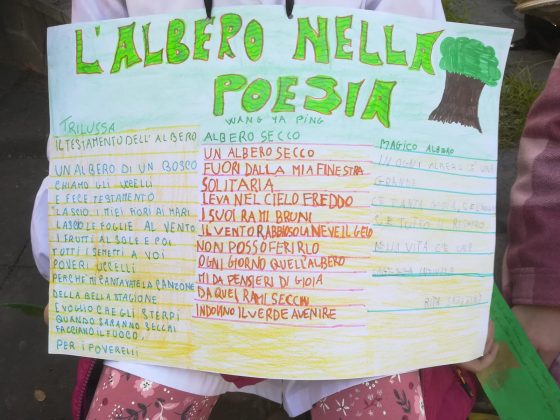 L'ALBERO NELLA
POESIA
TRILUSSA
IL TESTAMENTO DELL'ALBERO
UN ALBERO DI UN BOSCO
CHIAMÒ GLI UCELLI
E FECE TESTAMENTO
LASCIO I MIEI FIORI AL MARI
LASCIO LE FOGLIE AL VENTO
I FRUTTI AL SOLE E POI
TUTTI I SEMETTI A VOI
POVERI UCCELLI
PERCHÉ MI CANTAVATE LA CANZONE
DELLA BELLA STAGIONE
E VOGLIO CHE GLI STERPI
QUANDO SARANNO SECCHI
FACCIANO IL FUOCO
PER I POVERELLI
WANG YA PING
ALBERO SECCO
UN ALBERO SECCO
FUORI DALLA MIA FINESTRA
SOLITARIA
LEVA NEL CIELO FREDDO
I SUOI RAMI BRUNI
IL VENTO RABBIOSO LA NEVE IL GELO
NON POSSO FERIRLO
OGNI GIORNO QUELL'ALBERO
MI DA PENSIERI DI GIOIA
DA QUEI RAMI SECCHI
INDOVINO IL VERDE A VENIRE
MAGICO ALBERO
IN OGNI ALBERO
GRANDE
NELLA VITA CHE